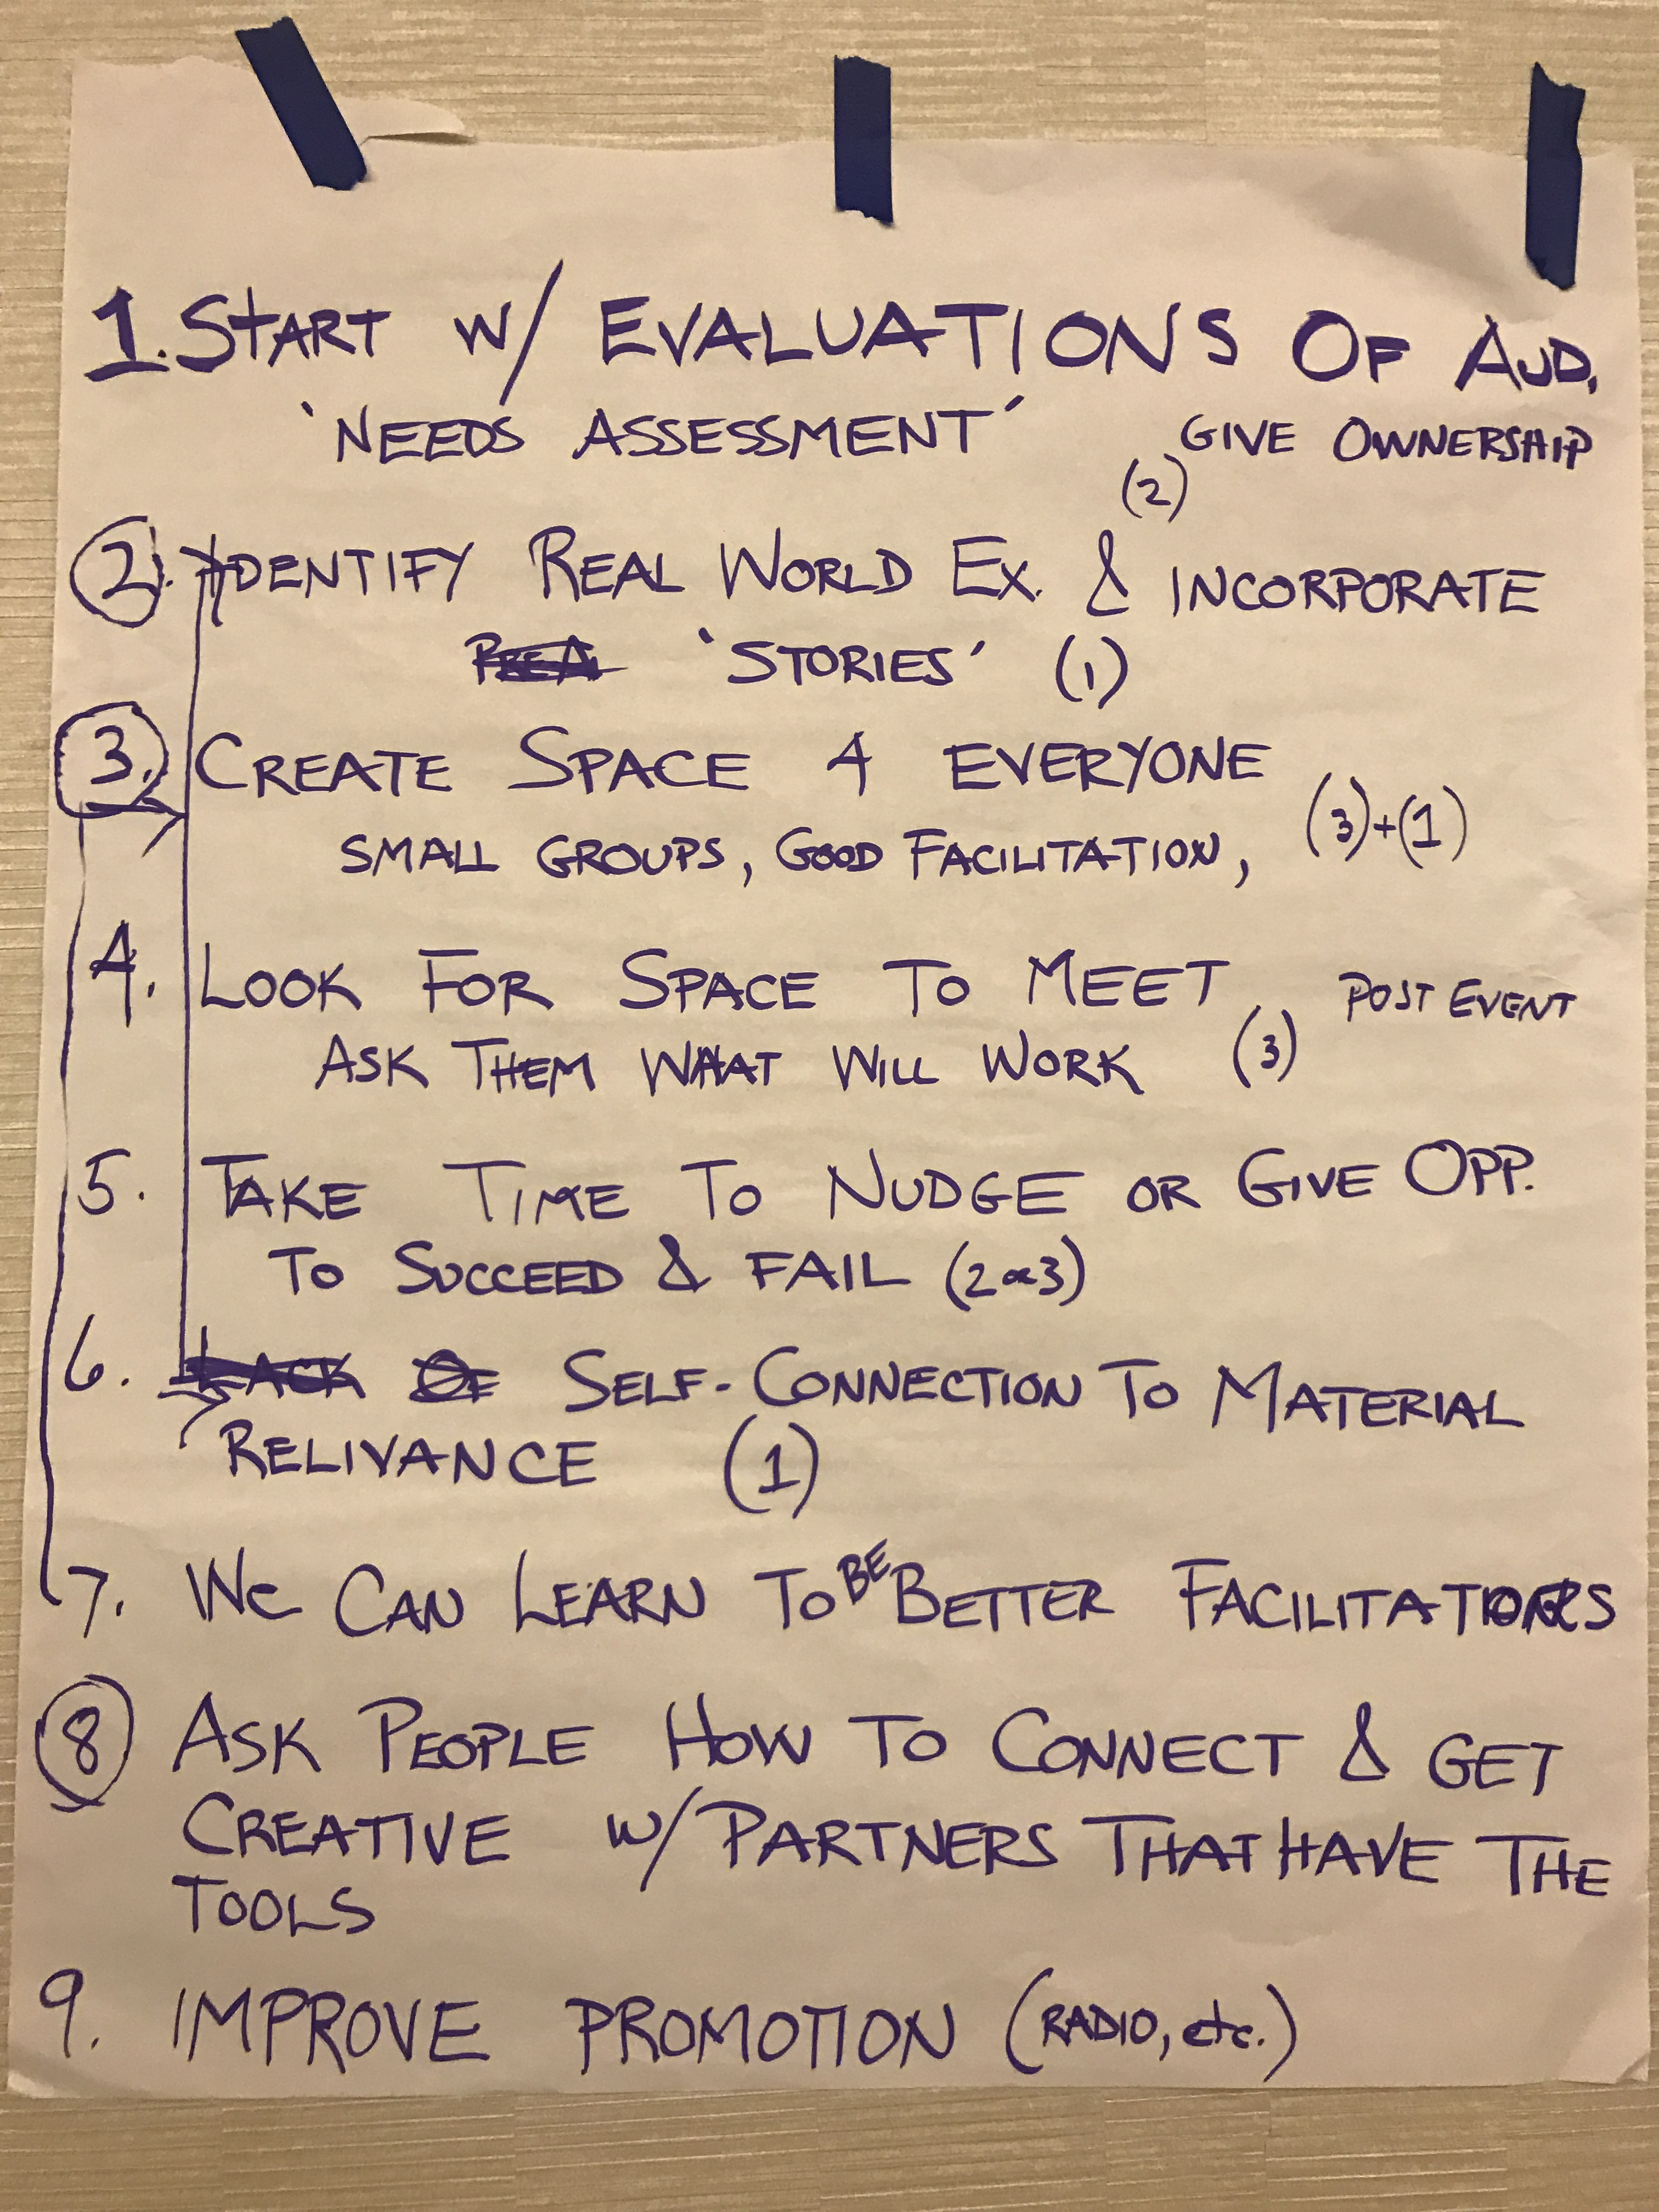 1. START W/ EVALUATIONS OF AUD.
'NEEDS ASSESSMENT' GIVE OWNERSHIP
(2)
2. IDENTIFY REAL WORLD EX. & INCORPORATE
'STORIES' (1)
3. CREATE SPACE 4 EVERYONE
SMALL GROUPS, GOOD FACILITATION, (3)+(1)
4. LOOK FOR SPACE TO MEET POST EVENT
ASK THEM WHAT WILL WORK (3)
5. TAKE TIME TO NUDGE OR GIVE OPP.
TO SUCCEED & FAIL (2 or 3)
6. LACK OF SELF-CONNECTION TO MATERIAL
RELIVANCE (1)
7. We CAN LEARN TO BE BETTER FACILITATORS
8 ASK PEOPLE HOW TO CONNECT & GET
CREATIVE W/ PARTNERS THAT HAVE THE
TOOLS
9. IMPROVE PROMOTION (RADIO, etc.)